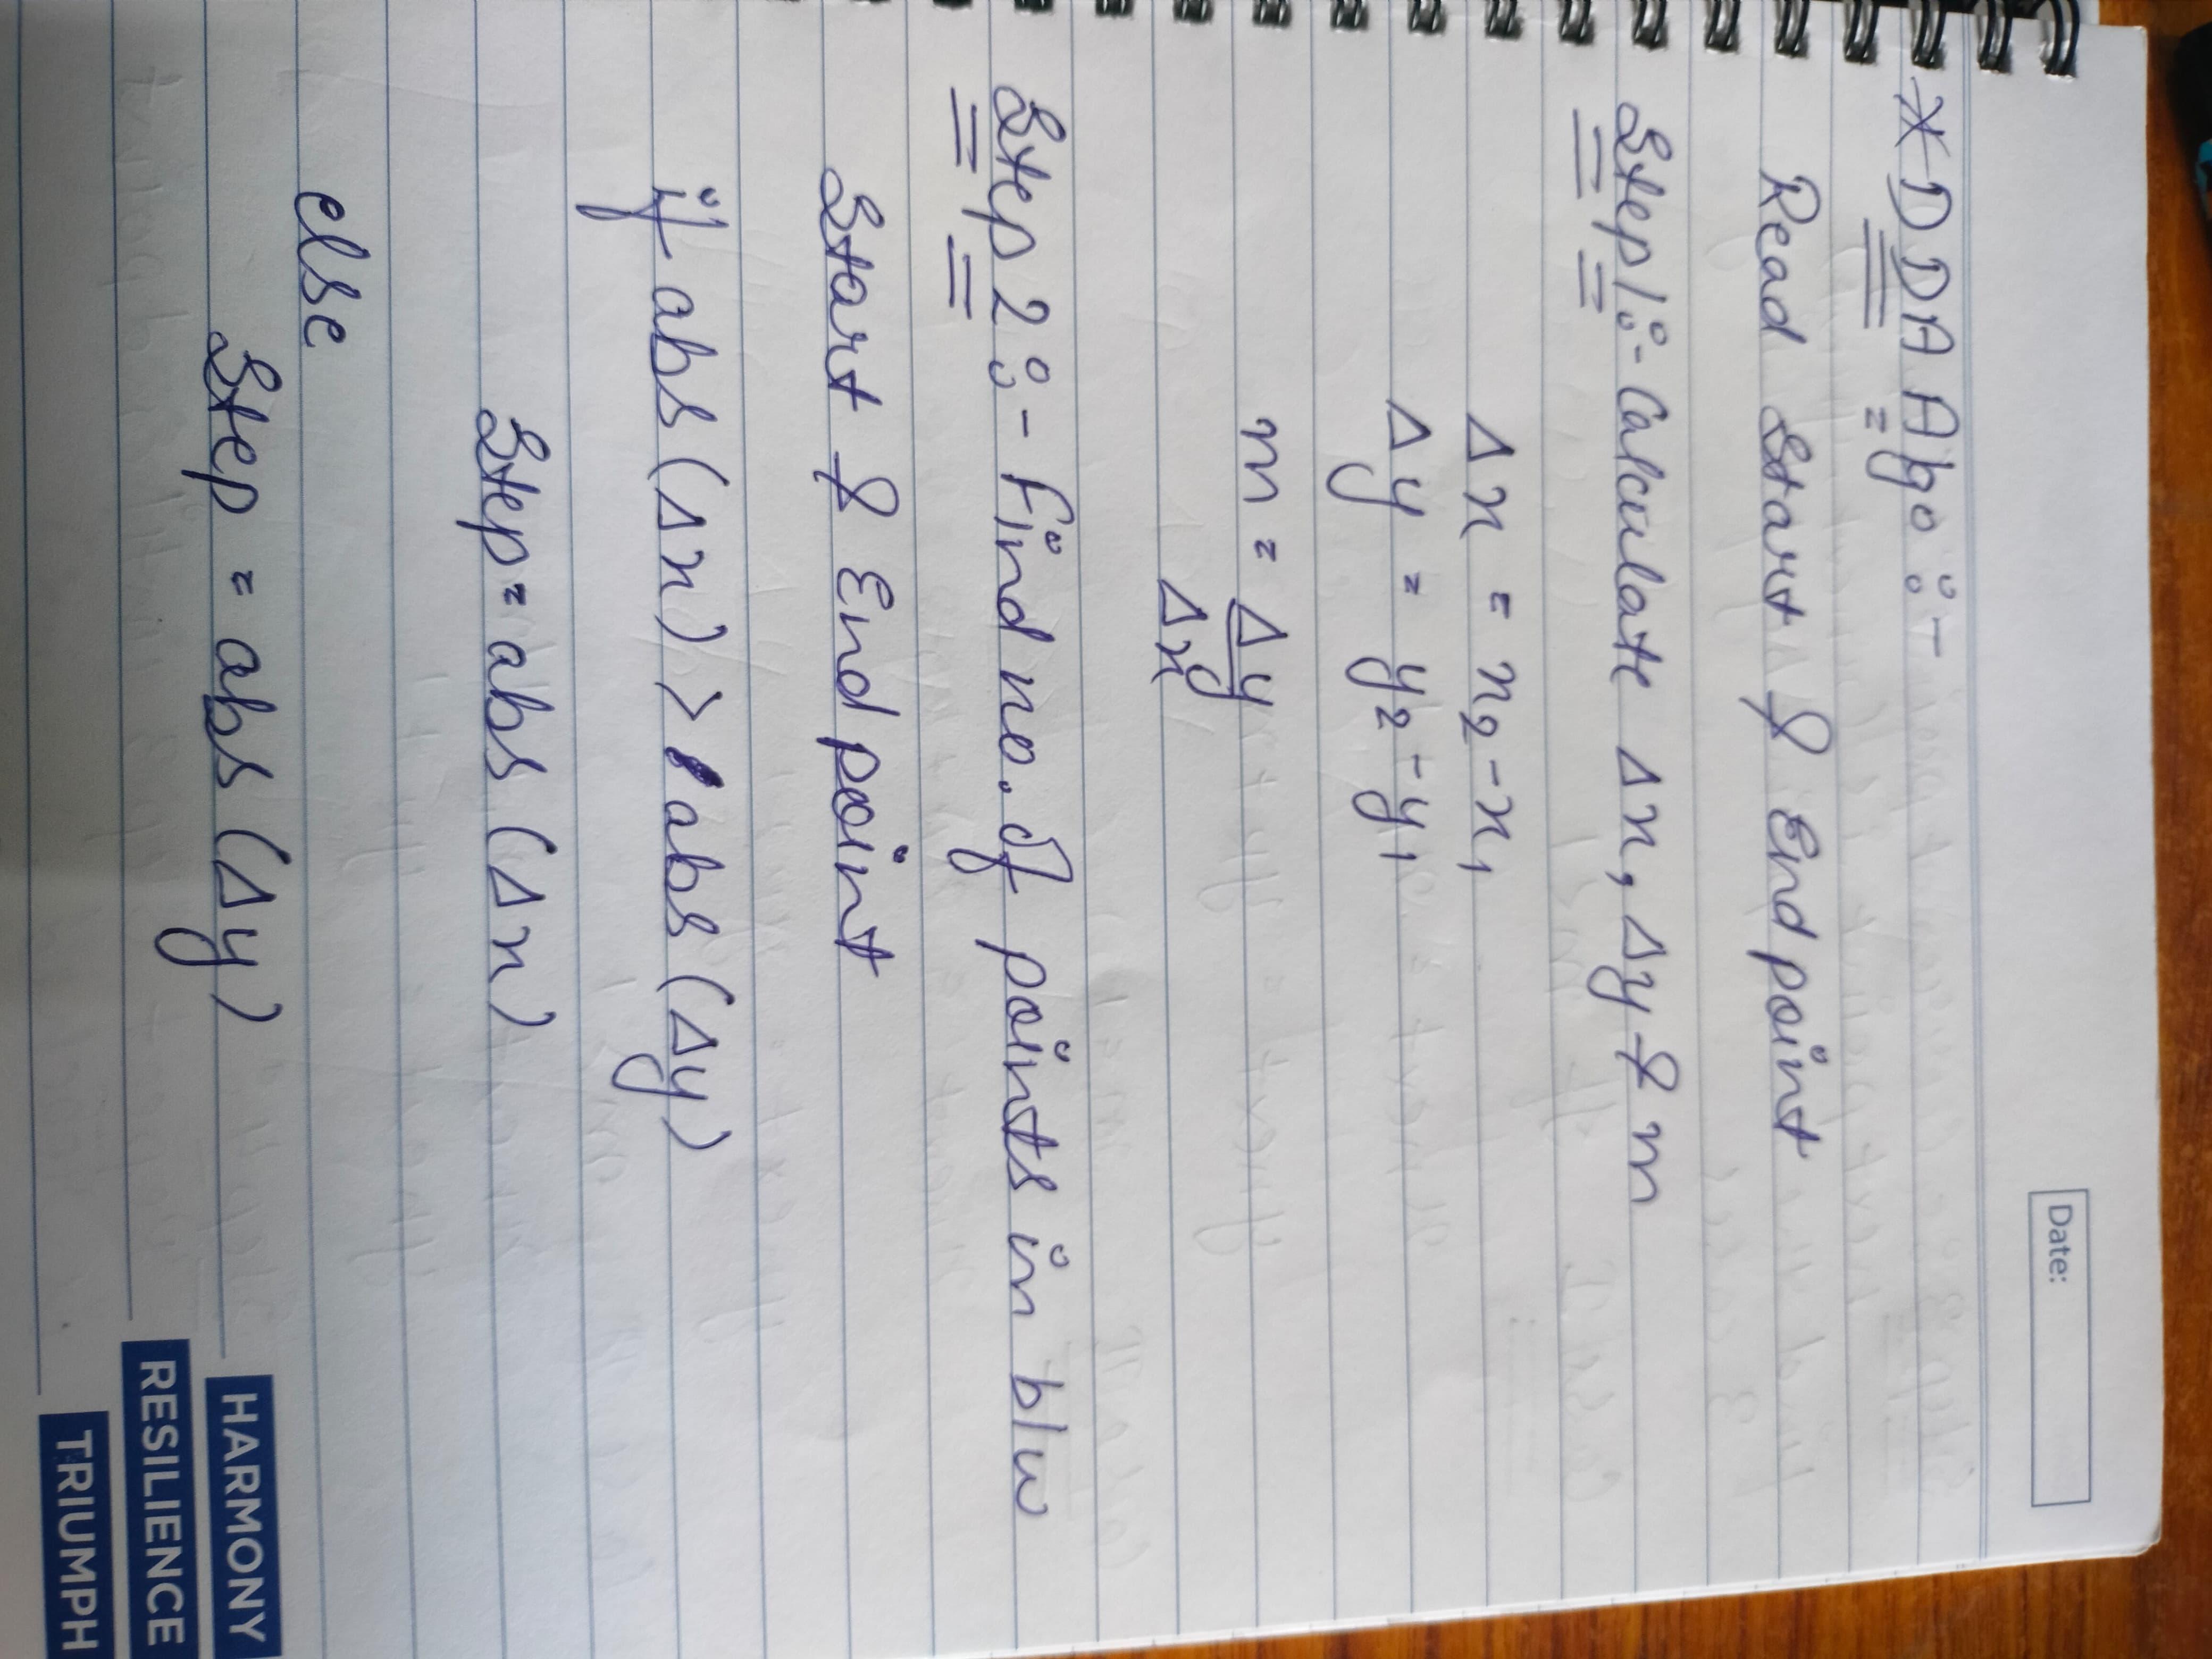 Date:
* DDA Algo :-
Read Start & End point
Step 1 :- Calculate Δx, Δy & m
Δx = x₂ - x₁
Δy = y₂ - y₁
m = Δy
Δx
Step 2 :- Find no. of points in b/w
Start & End point
if abs (Δx) > abs (Δy)
Step = abs (Δx)
else
Step = abs (Δy)
HARMONY
RESILIENCE
TRIUMPH